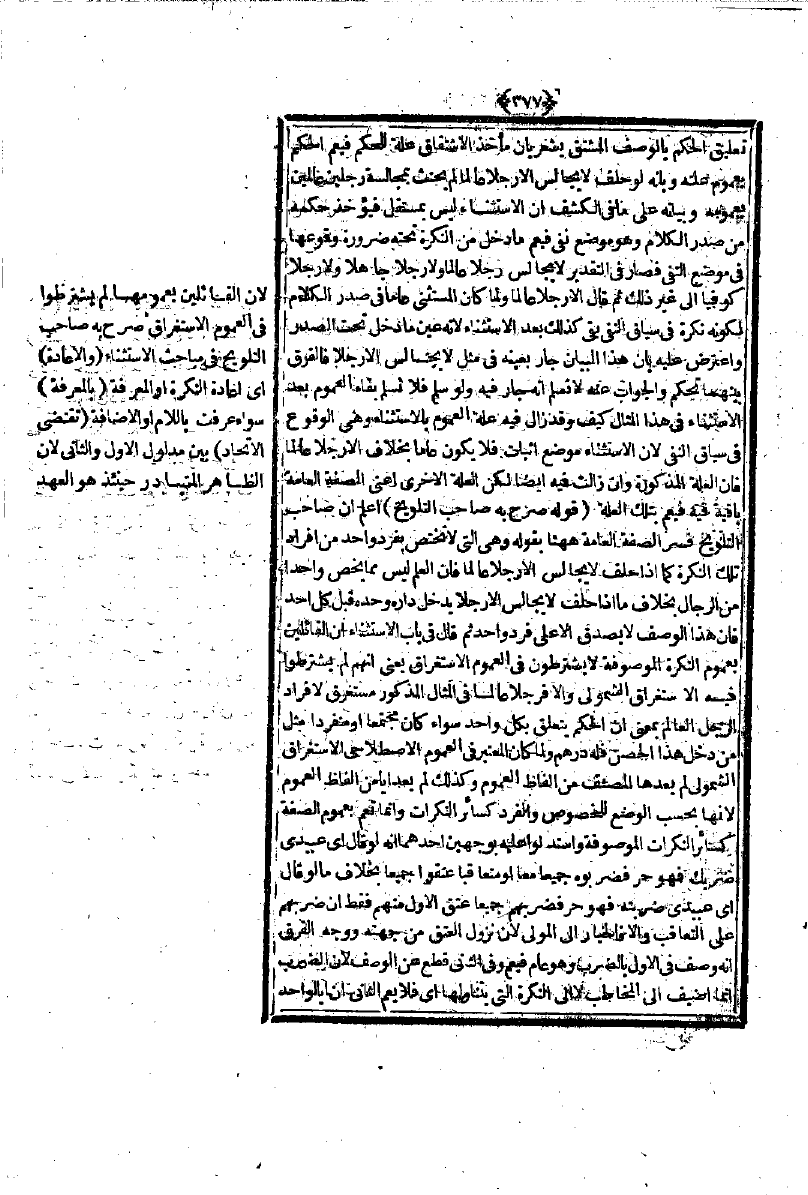 ﴿٣٧٧﴾
تعليق الحكم بالوصف المشتق يشعر بان مأخذ الاشتقاق علة للحكم فيعم الحكم
بعموم علته وبانه لو حلف لايجالس الارجلا عالما لم يحنث بمجالسة رجلين عالمين
بعمومه وبيانه على مافى الكشف ان الاستثناء ليس بمستقل فيؤخذ حكمه
من صدر الكلام وهو موضع نفى فيعم مادخل من النكرة تحته ضرورة وقوعها
فى موضع النفى فصار فى التقدير لايجالس رجلا عالما ولارجلا جاهلا ولارجلا
كوفيا الى غير ذلك ثم قال الارجلا عالما ولما كان المستثنى عاما فى صدر الكلام
لكونه نكرة فى سياق النفى بقى كذلك بعد الاستثناء لانه عين مادخل تحت الصدر
واعترض عليه بان هذا البيان جار بعينه فى مثل لايجالس الارجلا فالفرق
بينهما تحكم والجواب عنه لانسلم انه جار فيه ولو سلم فلا نسلم بقاء العموم بعد
الاستثناء فى هذا المثال كيف وقد زال فيه علة العموم بالاستثناء وهى الوقوع
فى سياق النفى لان الاستثناء موضع اثبات فلا يكون عاما بخلاف الارجلا عالما
فان العلة المذكورة وان زالت فيه ايضا لكن العلة الاخرى اعنى الصفة العامة
باقية فيه فيعم بتلك العلة (قوله صرح به صاحب التلويح) اعلم ان صاحب
التلويح فسر الصفة العامة ههنا بقوله وهى التى لاتختص بفرد واحد من افراد
تلك النكرة كما اذا حلف لايجالس الارجلا عالما فان العلم ليس مما يخص واحدا
من الرجال بخلاف ما اذا حلف لايجالس الارجلا يدخل داره وحده قبل كل احد
فان هذا الوصف لايصدق الاعلى فرد واحد ثم قال فى باب الاستثناء ان القائلين
بعموم النكرة الموصوفة لايشترطون فى العموم الاستغراق يعنى انهم لم يشترطوا
فيه الاستغراق الشمولى والا فرجلا عالما فى المثال المذكور مستغرق لافراد
الرجل العالم بمعنى ان الحكم يتعلق بكل واحد سواء كان مجتمعا او منفردا مثل
من دخل هذا الحصن فله درهم ولما كان المعتبر فى العموم الاصطلاحى الاستغراق
الشمولى لم يعدها المصنف من الفاظ العموم وكذلك لم يعد ايا من الفاظ العموم
لانها بحسب الوضع للخصوص والفرد كسائر النكرات وانما تعم بعموم الصفة
كسائر النكرات الموصوفة واستدلوا عليه بوجهين احدهما انه لو قال اى عبيدى
ضربك فهو حر فضربوه جميعا معا او متعاقبا عتقوا جميعا بخلاف مالو قال
اى عبيدى ضربته فهو حر فضربهم جميعا عتق الاول منهم فقط ان ضربهم
على التعاقب والا فالخيار الى المولى لان نزول العتق من جهته ووجه الفرق
انه وصف فى الاول بالضرب وهو عام فيعم وفى الثانى قطع عن الوصف لان الضرب
انما اضيف الى المخاطب لا الى النكرة التى يتناولها اى فلا يعم الثانى ان ايا لواحد
لان القائلين بعمومها لم يشترطوا
فى العموم الاستغراق صرح به صاحب
التلويح فى مباحث الاستثناء (والاعادة)
اى اعادة النكرة او المعرفة (بالمعرفة)
سواء عرفت باللام او الاضافة (تقتضى
الاتحاد) بين مدلولى الاول والثانى لان
الظاهر المتبادر حينئذ هو العهد